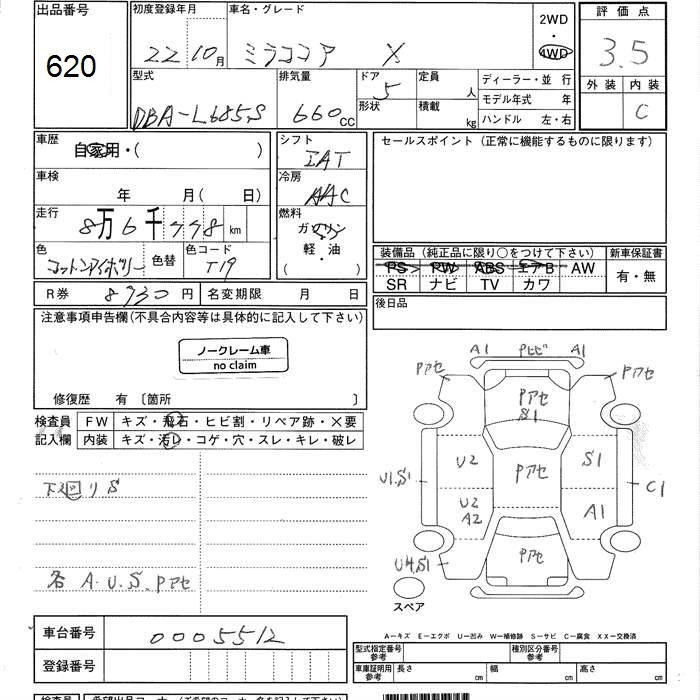 出品番号
620
初度登録年月
22 10月
車名・グレード
ミラココア X
2WD
・
4WD
評価点
3.5
外装 内装
C
型式
DBA-L685S
排気量
660cc
ドア
5
形状
定員
人
積載
kg
ディーラー・並 行
モデル年式 年
ハンドル 左・右
車歴
自家用・( )
車検
年 月( 日)
走行
8万6千778km
色
コットンアイボリー
色替
色コード
T19
シフト
IAT
冷房
AAC
燃料
ガソリン
軽・油
( ・ )
セールスポイント(正常に機能するものに限ります)
装備品(純正品に限り○をつけて下さい)
PS PW ABS エアB AW
SR ナビ TV カワ
新車保証書
有・無
後日品
R券 8930円
名変期限 月 日
注意事項申告欄(不具合内容等は具体的に記入して下さい)
ノークレーム車
no claim
修復歴 有 〔箇所 〕
検査員
記入欄
FW キズ・飛石・ヒビ割・リペア跡・X要
内装 キズ・汚レ・コゲ・穴・スレ・キレ・破レ
下回りS
各 A.U.S.Pアセ
A1 PヒビA1
Pアセ Pアセ
Pアセ
S1
U2 Pアセ S1
U1.S1 C1
U2
A2 A1
Pアセ
U4.S1
スペア
A―キズ E―エクボ U―凹み W―補修跡 S―サビ C―腐食 XX―交換済
車台番号 0005512
登録番号
型式指定番号
参考
種別区分番号
参考
車庫証明用
参考
長さ cm 幅 cm 高さ cm